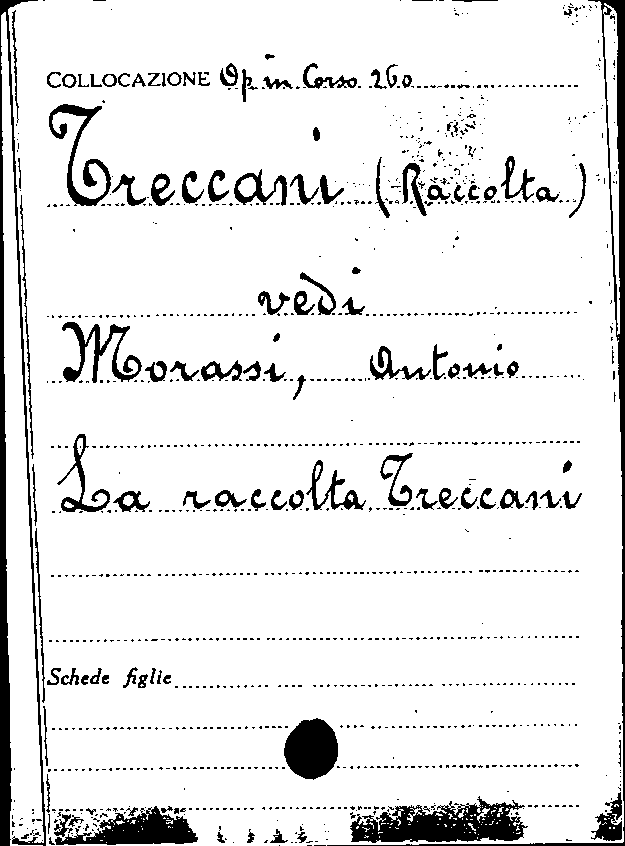 COLLOCAZIONE Op in Corso 260
Treccani (Raccolta)
vedi
Morassi, Antonio
La raccolta Treccani
Schede figlie